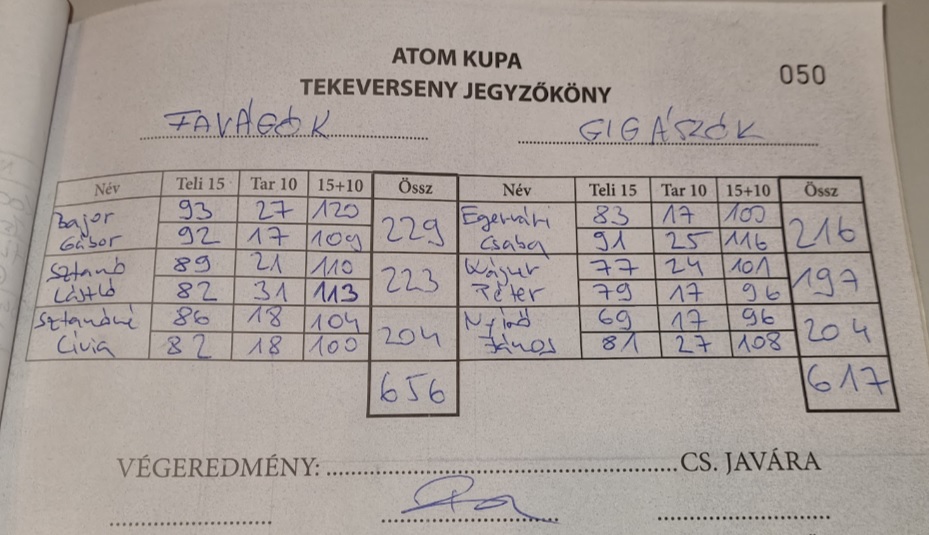 ATOM KUPA
050
TEKEVERSENY JEGYZŐKÖNY
FAVÁGÓK GIGÁSZÓK
Név Teli 15 Tar 10 15+10 Össz Név Teli 15 Tar 10 15+10 Össz
Bajor 93 27 120 229 Egervári 83 17 100 216
Gábor 92 17 109 Csaba 91 25 116
Sztanó 89 21 110 223 Wágur 77 24 101 197
László 82 31 113 Péter 79 17 96
Sztanóné 86 18 104 204 69 17 96 204
Lívia 82 18 100 János 81 27 108
656 617
VÉGEREDMÉNY: CS. JAVÁRA